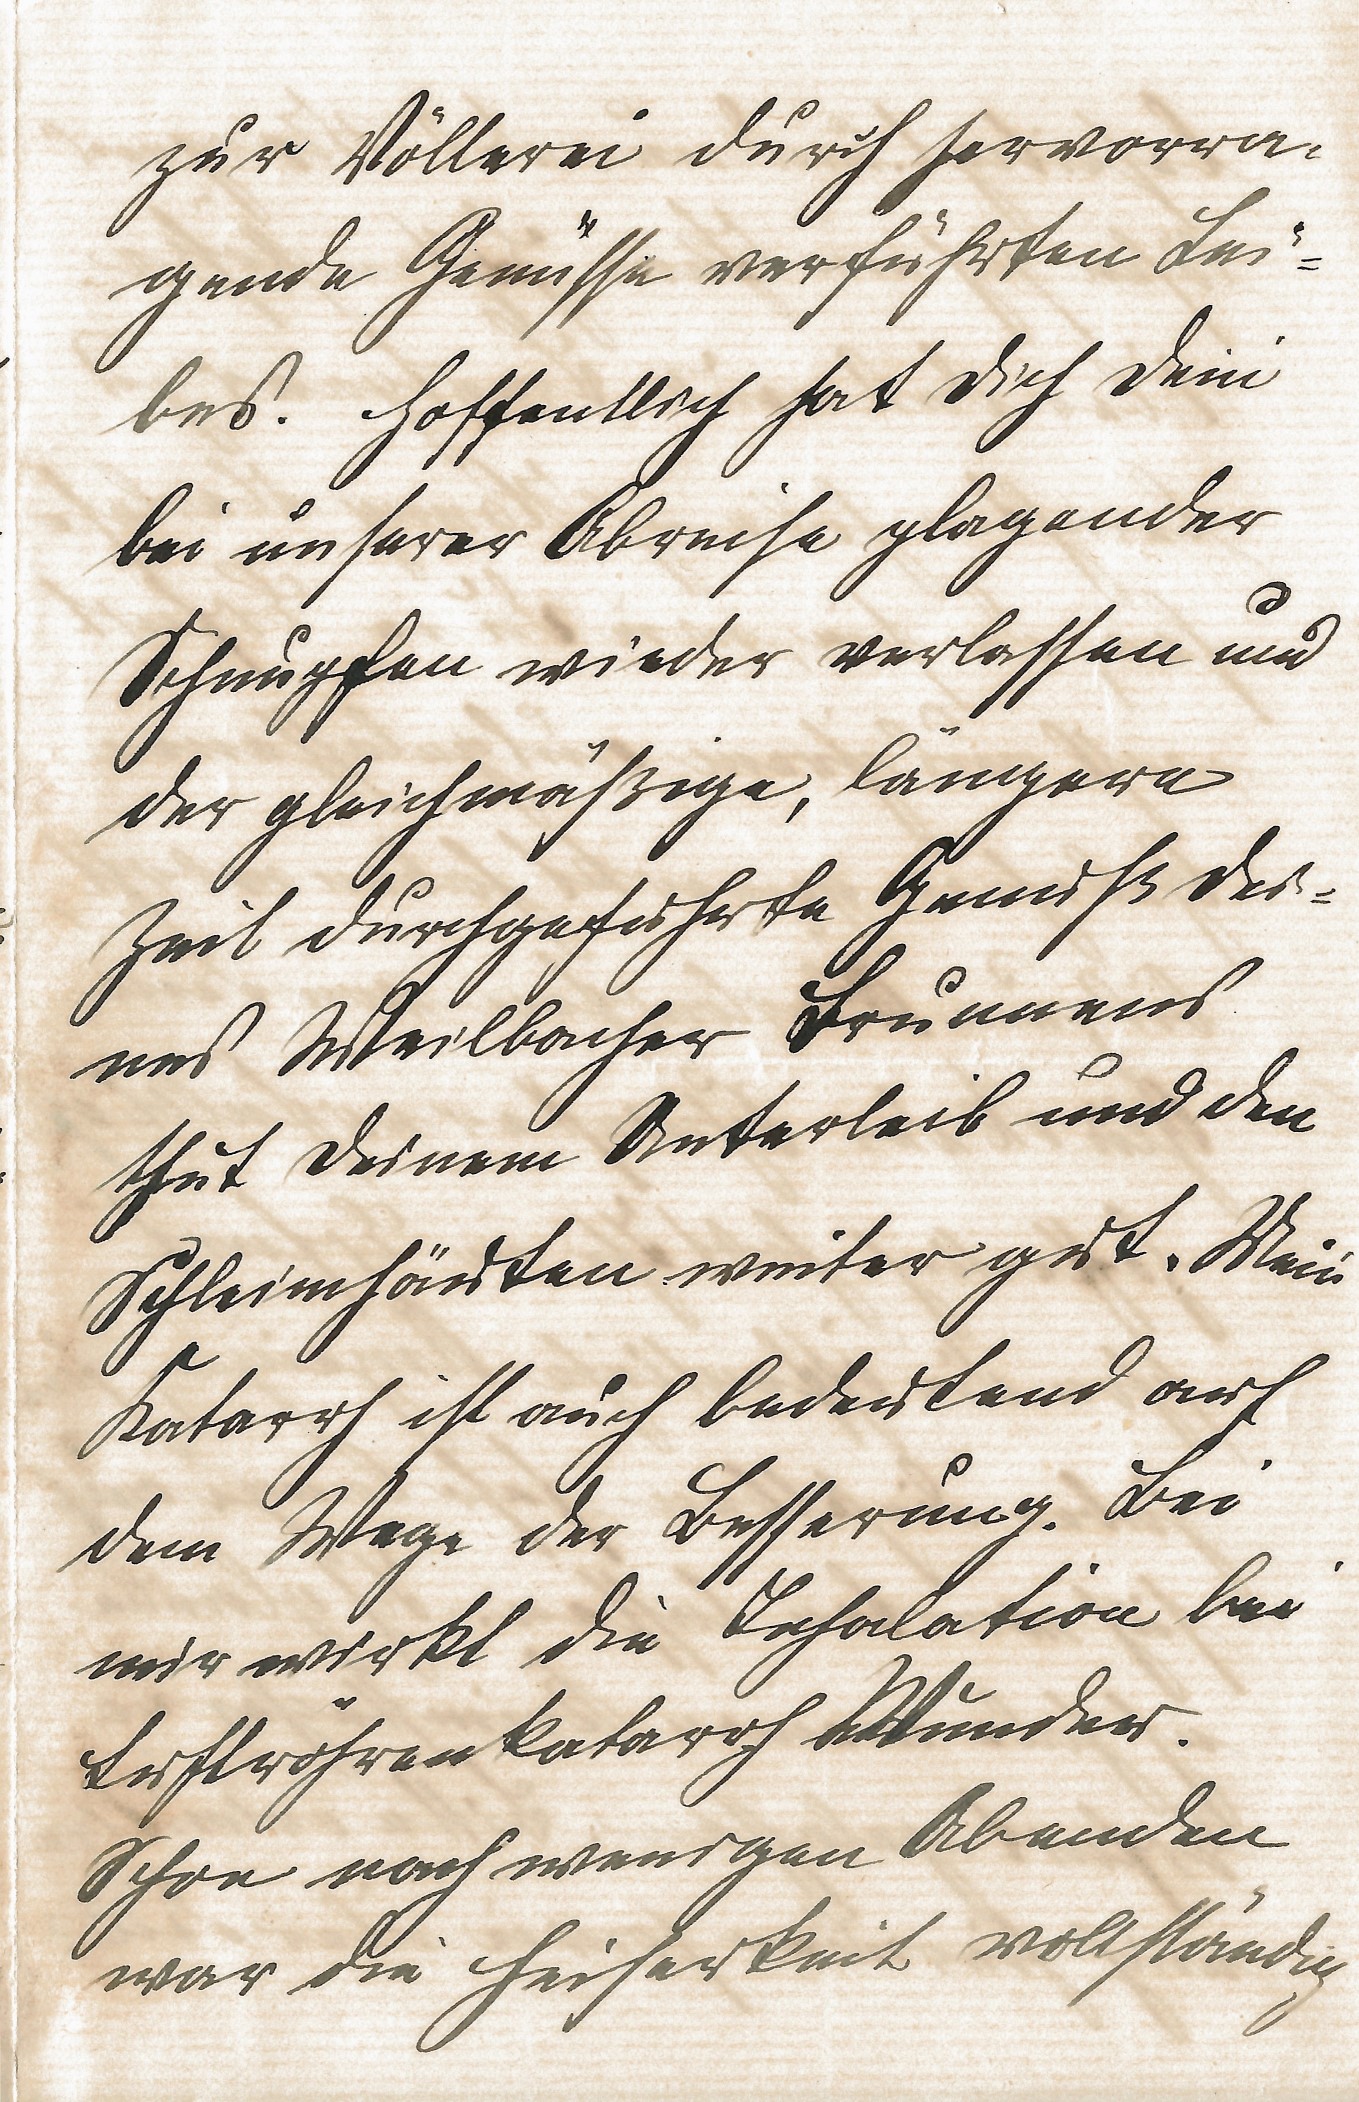 zur Völlerei durch hervorra-
gende Genüsse verführten Lei=
bes. Hoffentlich hat Dich Dein
bei unserer Abreise plagender
Schnupfen wieder verlassen und
der gleichmäßige, längere
Zeit durchgeführte Genuß Dei=
nes Weilbacher Brunnens
thut Deinem Unterleib und den
Schleimhäuten weiter gut. Mein
Katarrh ist auch bedeutend auf
dem Wege der Besserung. Bei
mir wirkt die Inhalation bei
Luftröhrenkatarrh Wunder.
Schon nach wenigen Abenden
war die Heiserkeit vollständig